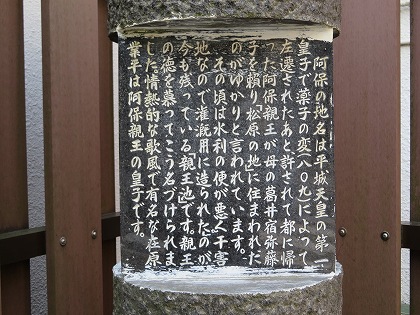 阿保の地名は平城天皇の第一
皇子で薬子の変(八〇九)によって
左遷されたあと許されて都に帰
った阿保親王が母の葛井宿弥藤
子を頼り「松原の地に住まわれた
のがゆかりと言われています。
その頃は水利の便が悪く干害
地なので灌漑用に造られたのが
今も残っている親王池です。親王
の徳を慕ってこう名づけられま
した情熱的な歌風で有名な在原
業平は阿保親王の皇子です。